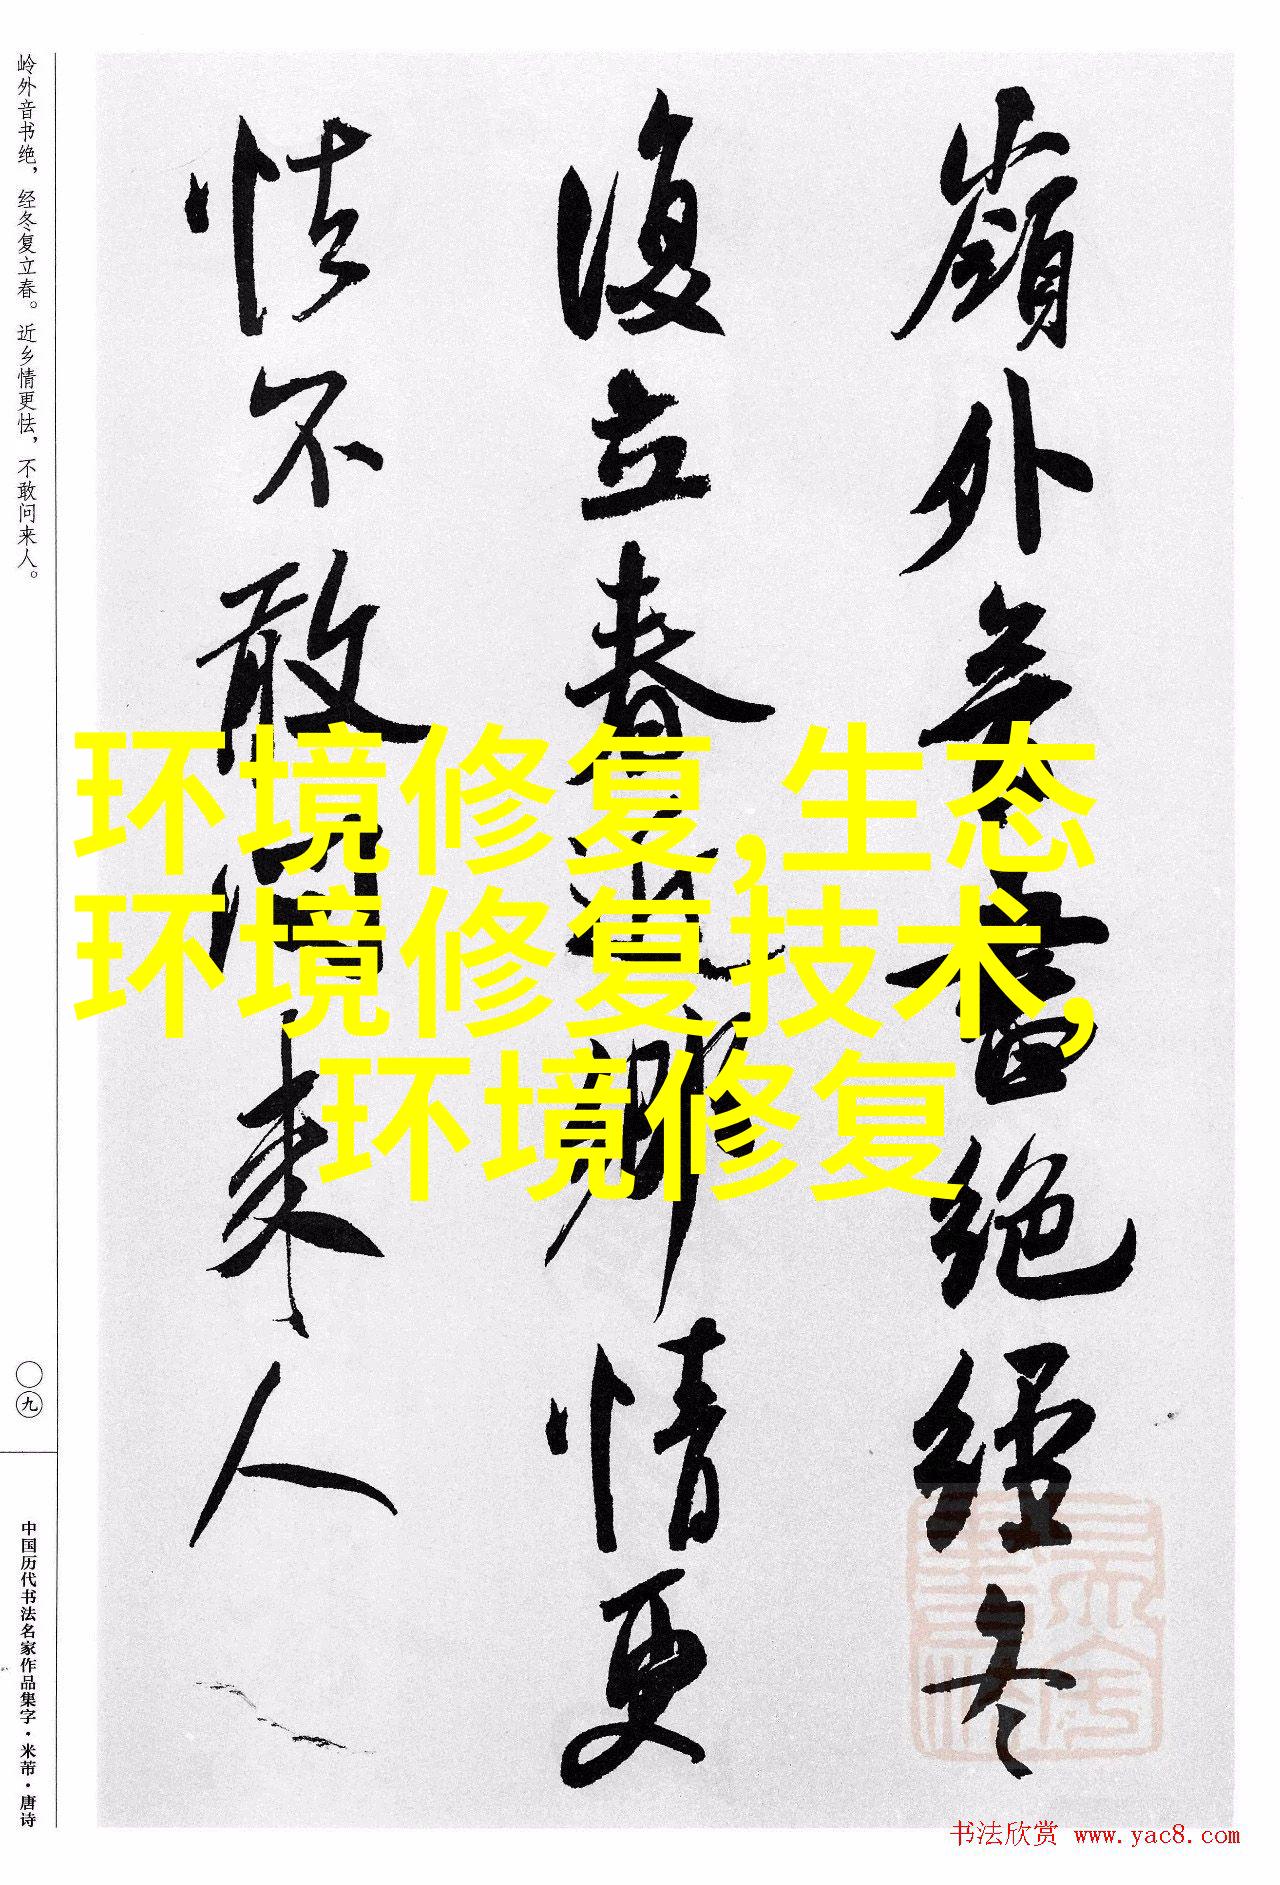 岭外音书绝，经冬复立春。近乡情更怯，不敢问来人。
嶺外音書絕經冬
復立春近鄉情更
怯不敢問來人
环境修复,生态
环境修复技术,
环境修复
〇九
中国历代书法名家作品集字·米芾·唐诗
书法欣赏 www.yac8.com